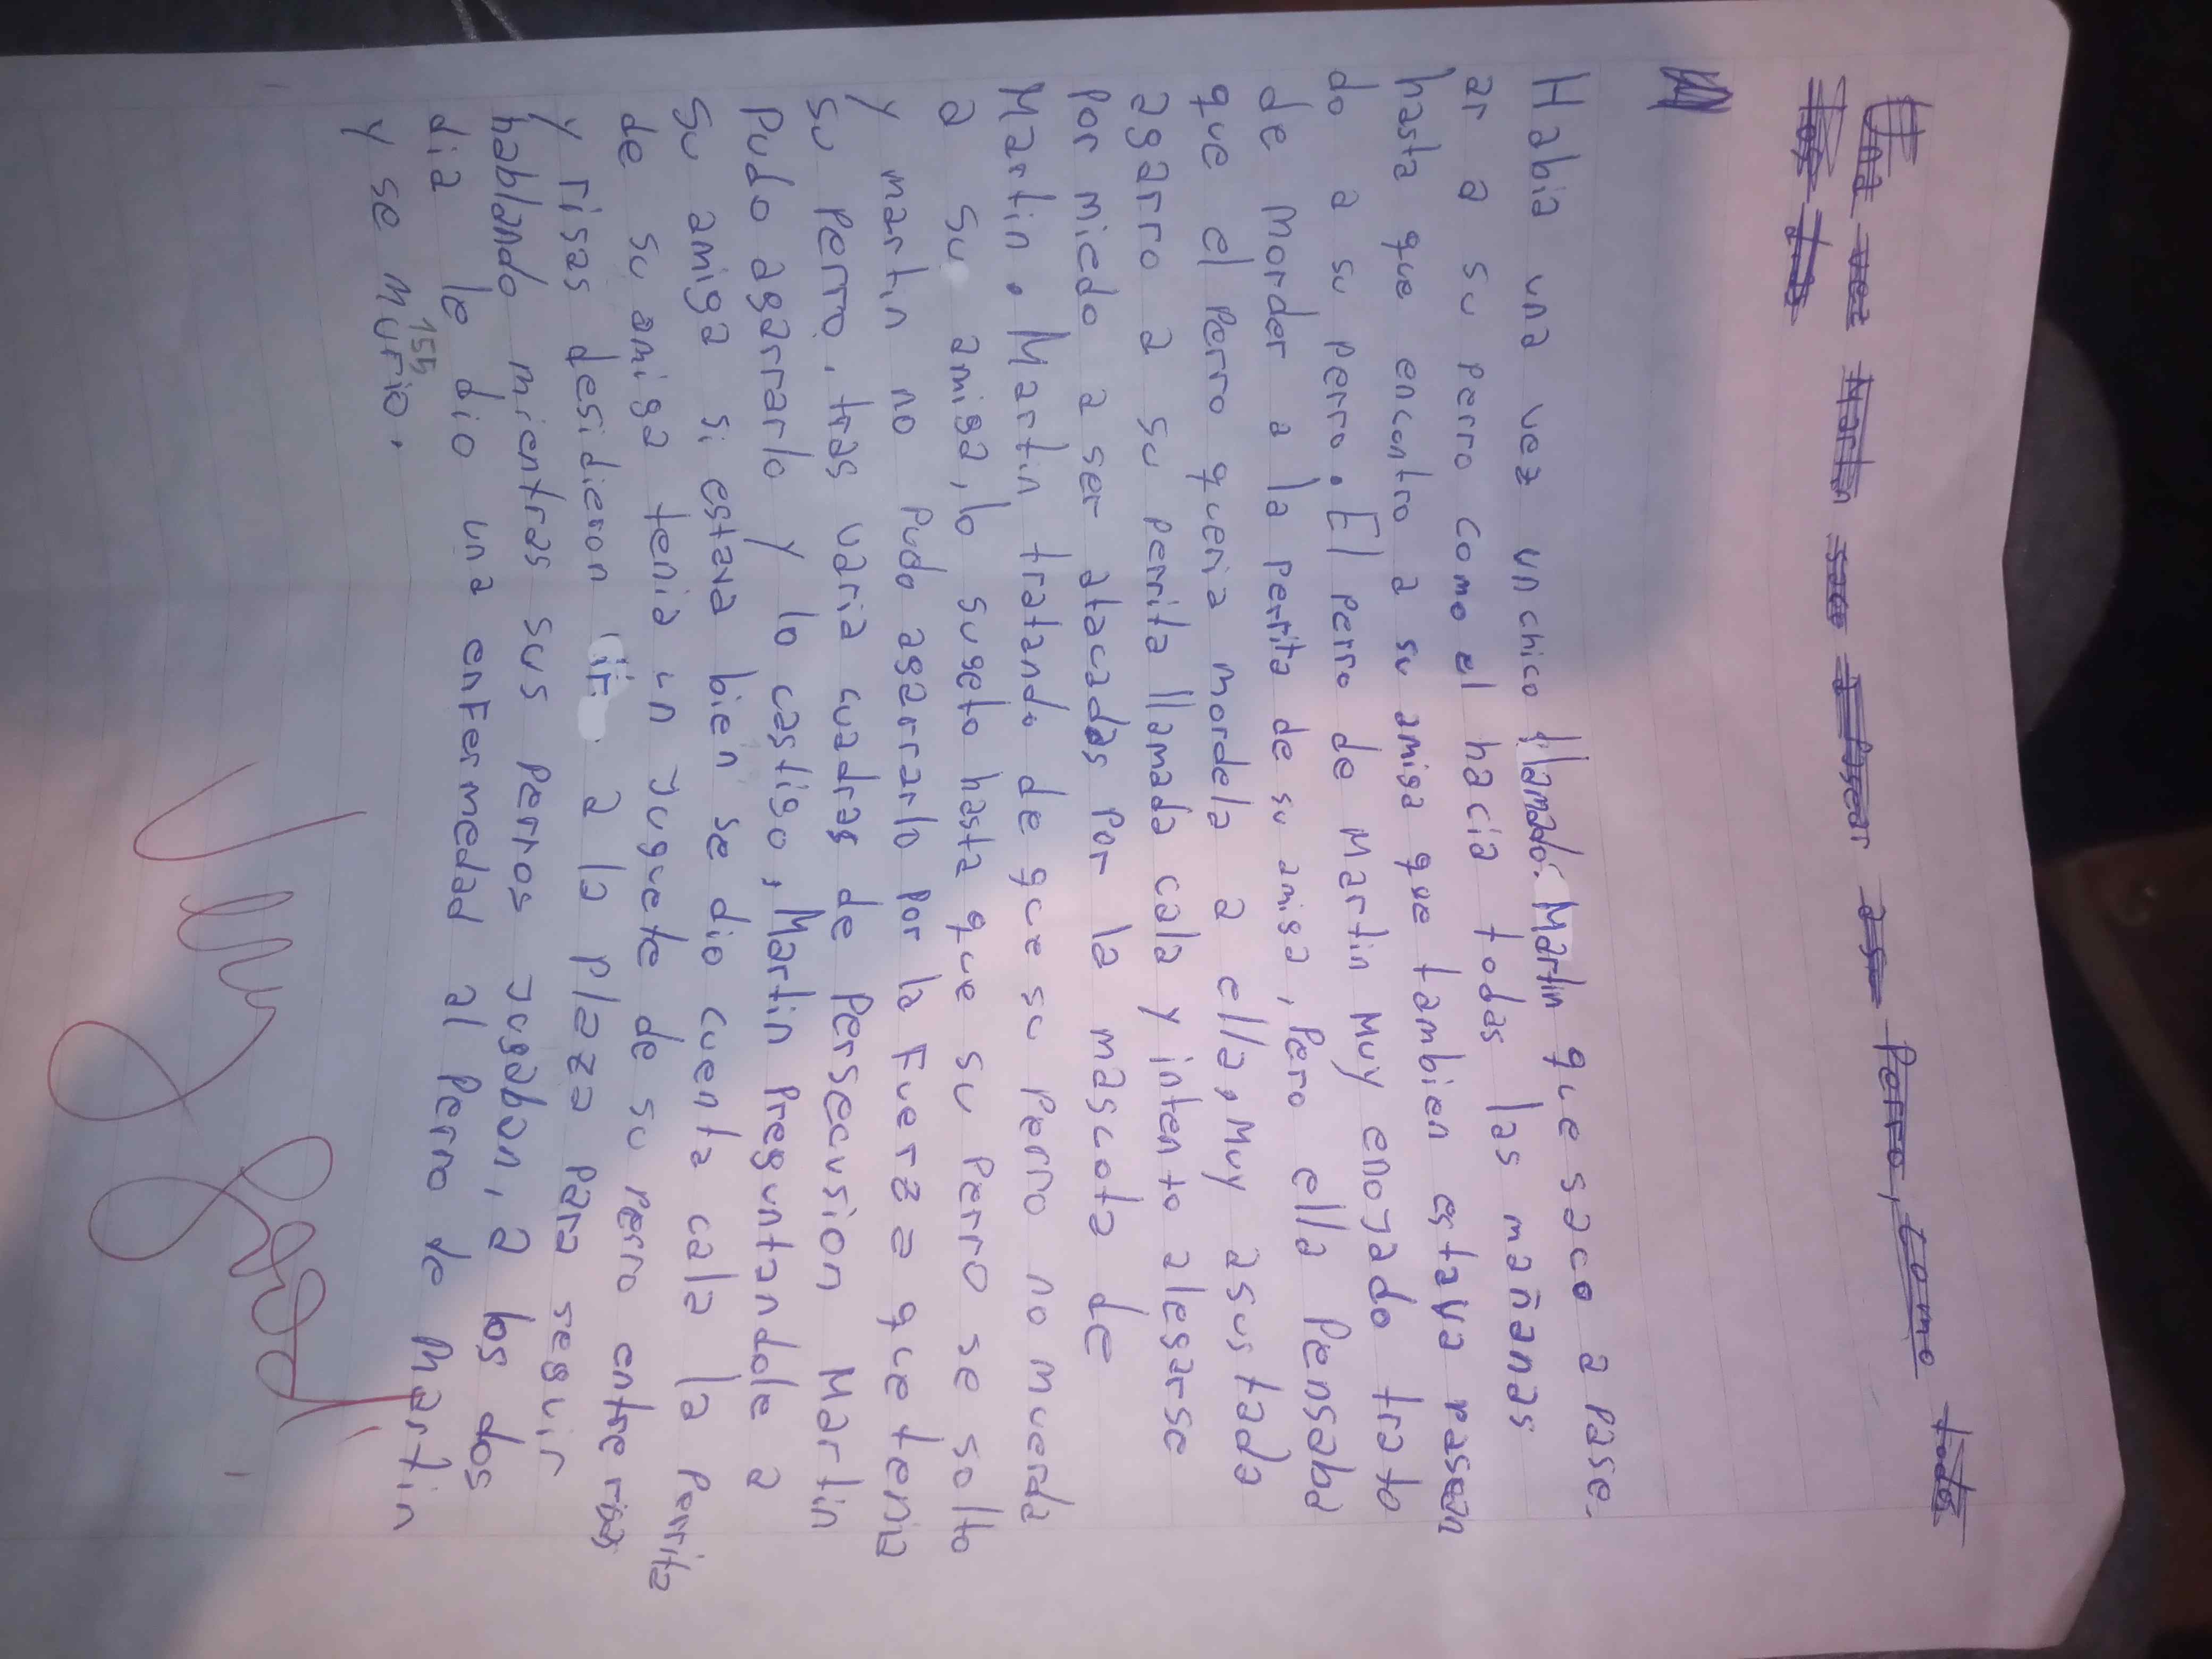 Una vez Martin saco a pasear a su perro, como todas
las
Habia una vez un chico llamado: Martin que saco a pase.
ar a su perro como el hacia todas las mañanas
hasta que encontro a su amiga que tambien estava pasean
do a su perro. El perro de Martin muy enojado trato
de morder a la perrita de su amiga, pero ella pensaba
que el perro queria mordela a ella, Muy asustada
agarro a su perrita llamada cala y intento alegarse
por miedo a ser atacadas por la mascota de
Martin. Martin tratando de que su perro no muerda
a su amiga, lo sugeto hasta que su perro se solto
y martin no pudo agarrarlo por la Fuerza que tenia
su perro, tras varia cuadras de Persecusion Martin
Pudo agarrarlo y lo castigo, Martin Preguntandole a
su amiga si estava bien se dio cuenta cala la Perrita
de su amiga tenia un Jugete de su perro entre risas
y risas desidieron ir a la plaza para seguir
hablando mientras sus perros Jugabon, a los dos
dia le dio una enfermedad al Perro de Martin
y se Murio.
154
Muy good!